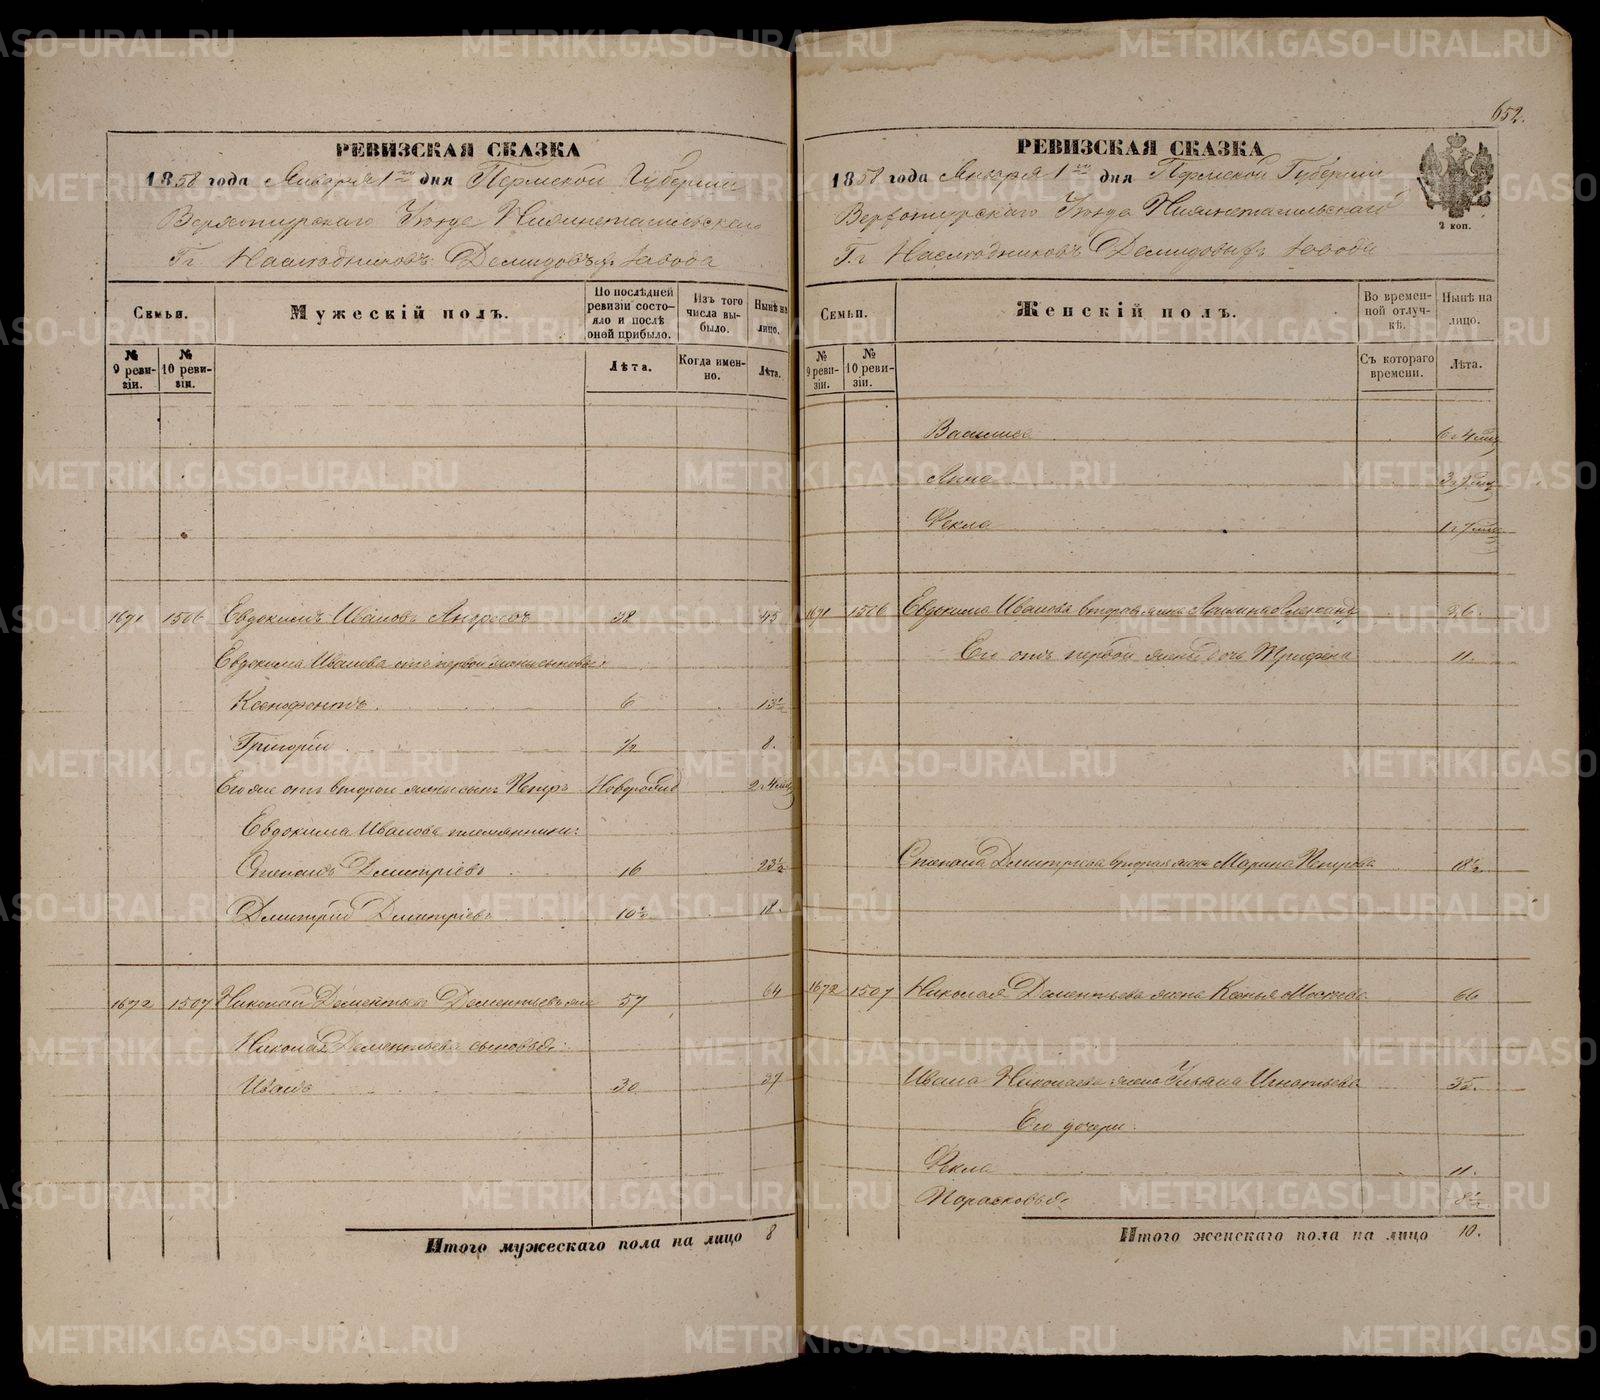 РЕВИЗСКАЯ СКАЗКА
1858 года Января 1го дня Пермской Губерніи
Верхотурскаго Уѣзда Нижнетагильскаго
Гг Наслѣдниковъ Демидовыхъ Завода
Семьи.
Мужескій полъ.
По послѣдней ревизіи состояло и послѣ оной прибыло.
Изъ того числа выбыло.
Нынѣ на лицо.
№ 9 ревизіи.
№ 10 ревизіи.
Лѣта.
Когда именно.
Лѣта.
1671 1506 Евдокимъ Ивановъ 38 45
Евдокима Иванова отъ первой жены сыновья:
Ксенофонтъ 6 13½
Григорій ½ 8.
Его же отъ второй жены сынъ Петръ Новорожд 2г.4мц
Евдокима Иванова племянники:
Степанъ Дмитріевъ 16 23½
Дмитрій Дмитріевъ 10½ 18.
1672 1507 Николай Дементьевъ Дементьевъ же 57 64
Николая Дементьева сыновья:
Иванъ 30 37
Итого мужескаго пола на лицо 8
652.
РЕВИЗСКАЯ СКАЗКА
1858 года Января 1го дня Пермской Губерніи
Верхотурскаго Уѣзда Нижнетагильскаго
Г.г Наслѣдниковъ Демидовыхъ Завода
2 коп.
Семьи.
Женскій полъ.
Во временной отлучкѣ.
Нынѣ на лицо.
№ 9 ревизіи.
№ 10 ревизіи.
Съ котораго времени.
Лѣта.
Василиса 6г.4мц
Анна
Фекла 1г.7мц
1671 1506 Евдокима Иванова вторая жена 36.
Его отъ первой жены дочь Трифена 11.
Степана Дмитріева вторая жена Марина Петрова 18½.
1672 1507 Николая Дементьева жена Ксенья 66
Ивана Николаева жена Ульяна Игнатьева 35.
Его дочери:
Фекла 11.
Парасковья 8½
Итого женскаго пола на лицо 10.
METRIKI.GASO-URAL.RU